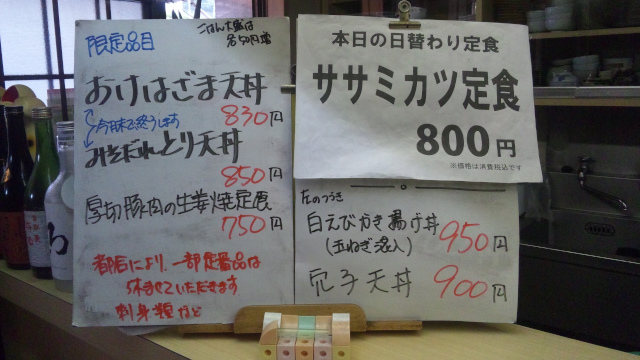 限定品目
ごはん大盛は
各50円増
おけはざま天丼
830円
今月末で終うします
みそだれとり天丼
850円
厚切豚肉の生姜焼定食
750円
都合により、一部定番品は
休ませていただきます
刺身類など
本日の日替わり定食
ササミカツ定食
800円
※価格は消費税込です
左のつづき
白えびかき揚げ丼
(玉ねぎ混入)
950円
穴子天丼
900円